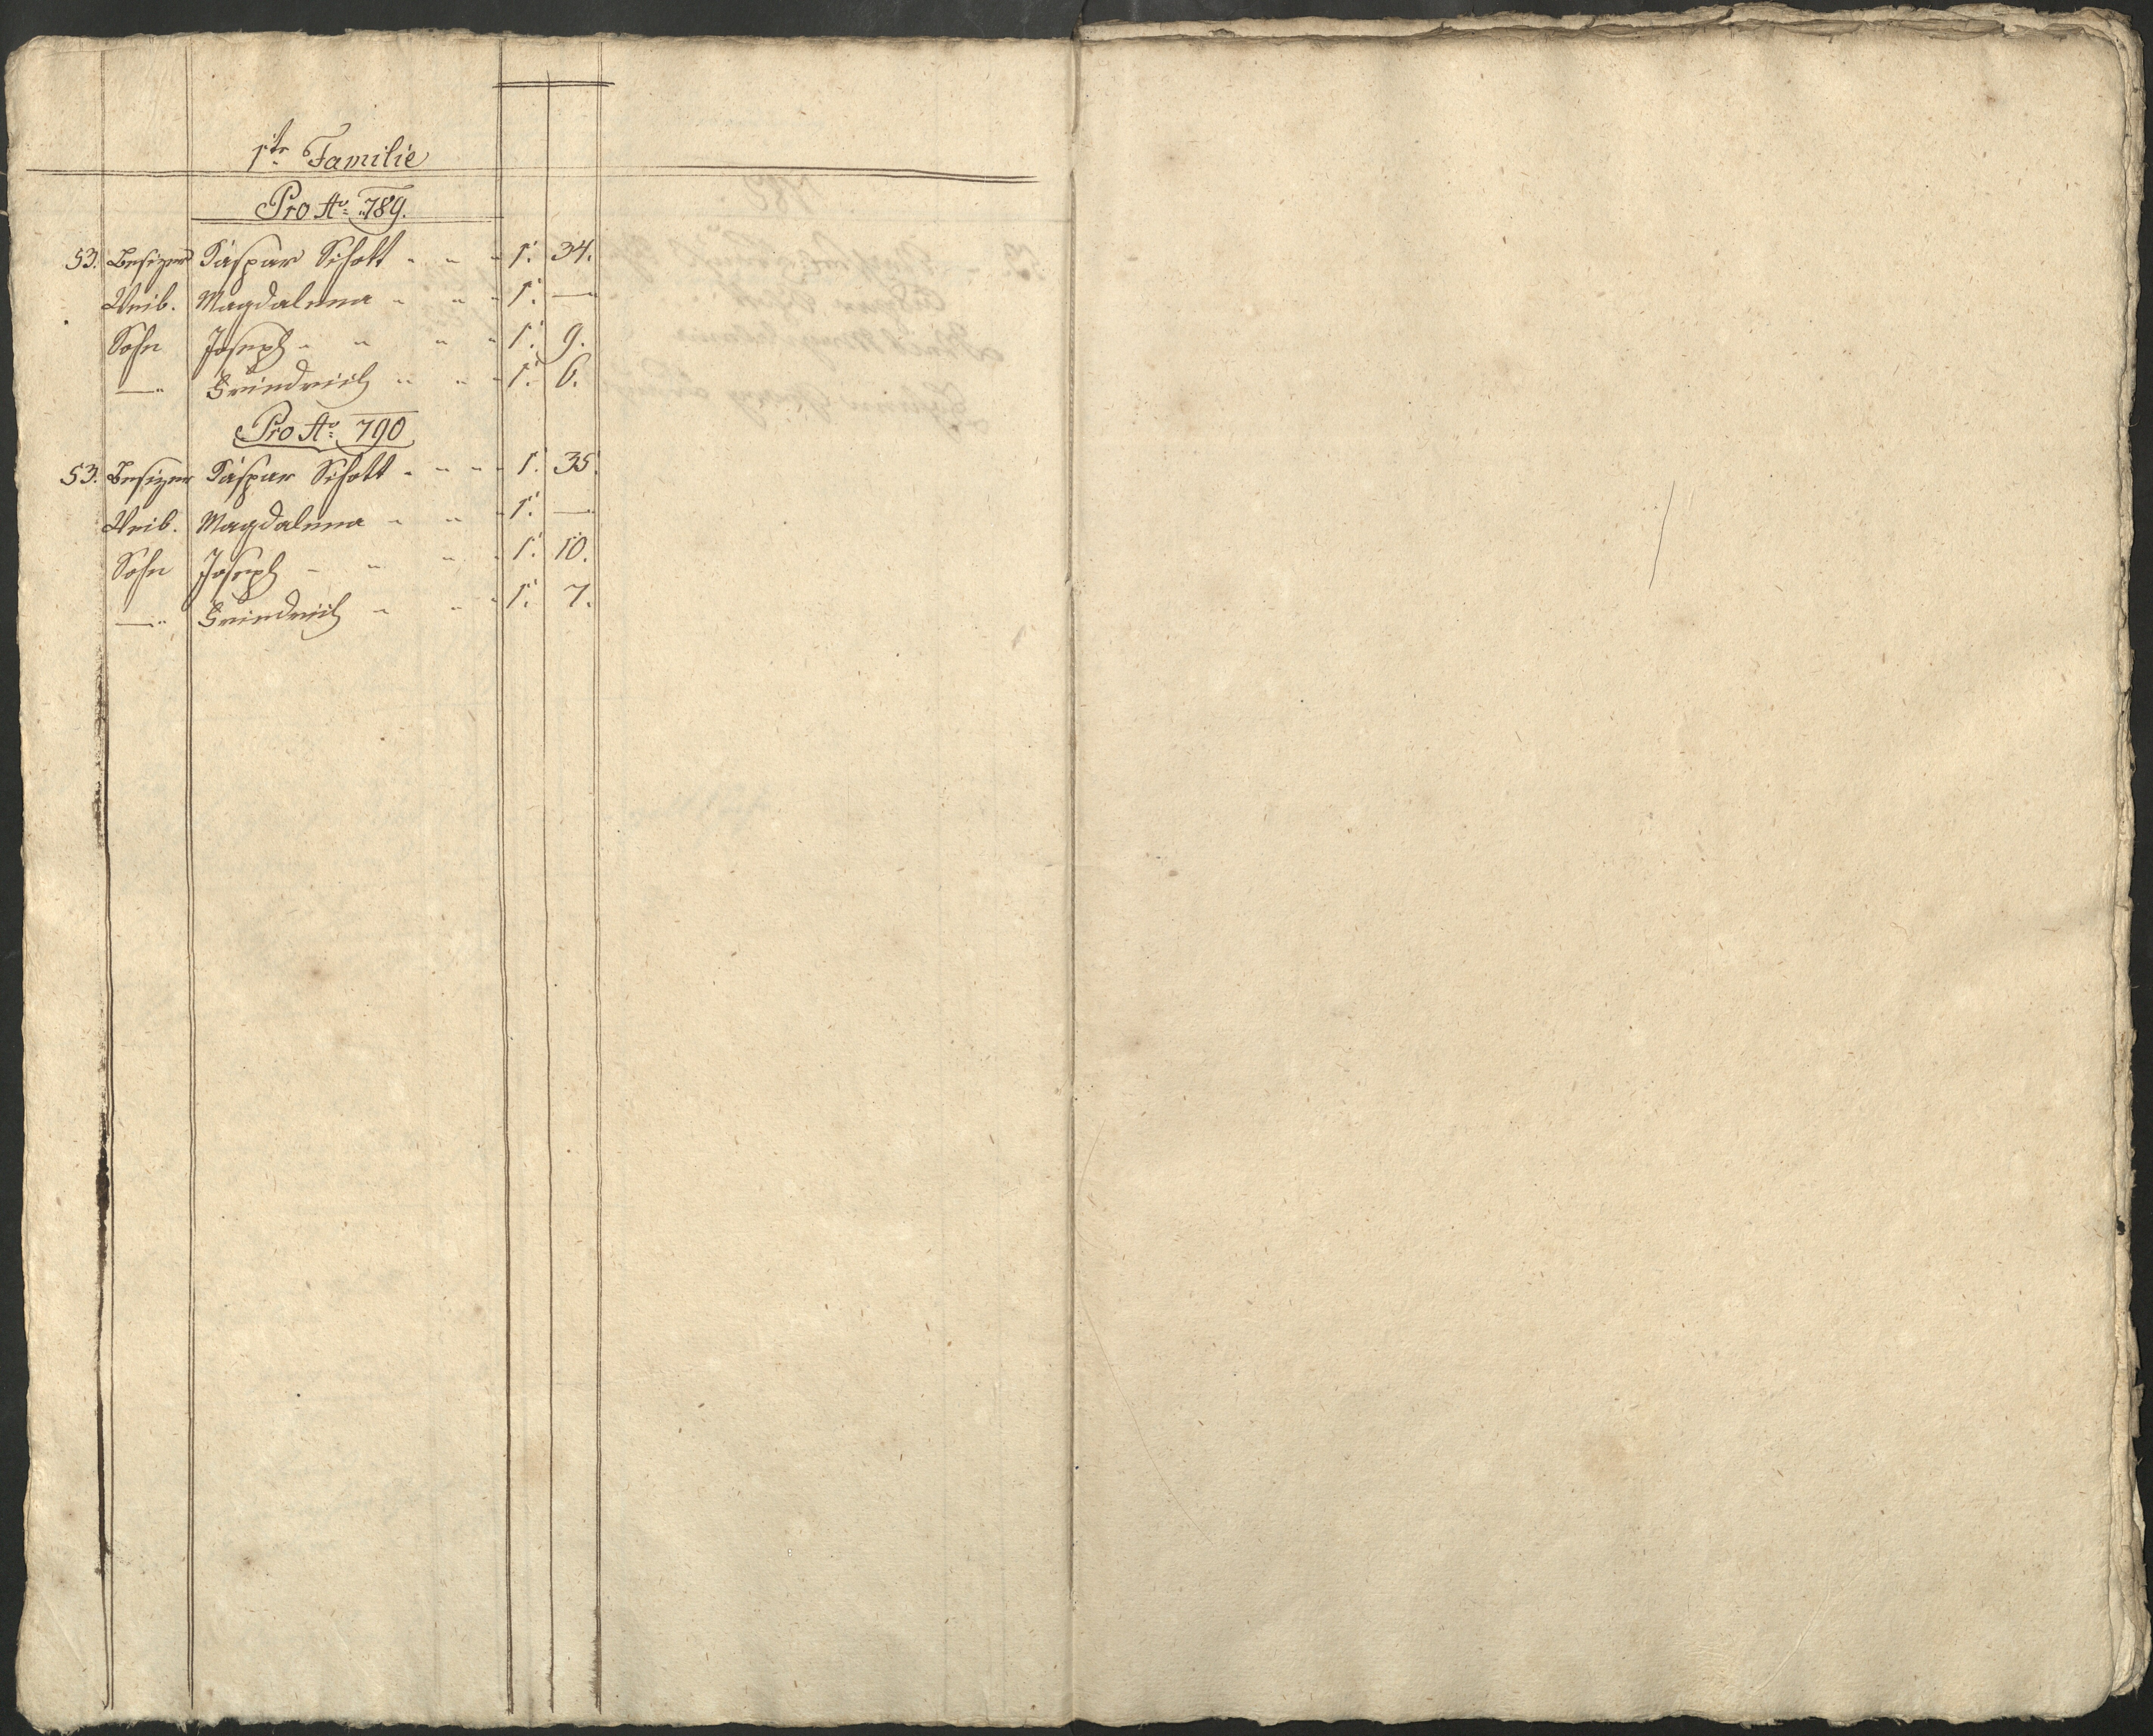 1te Familie
Pro Ao 789.
53. Besizer Caspar Schott - - - 1. 34.
Weib. Magdalena - - - 1. —
Sohn Joseph - - - - 1. 9.
—" Friedrich - - - 1. 6.
Pro Ao 790
53. Besizer Caspar Schott - - - - 1. 35.
Weib. Magdalena - - - 1. —
Sohn Joseph - - - - 1. 10.
—" Friedrich - - - 1. 7.